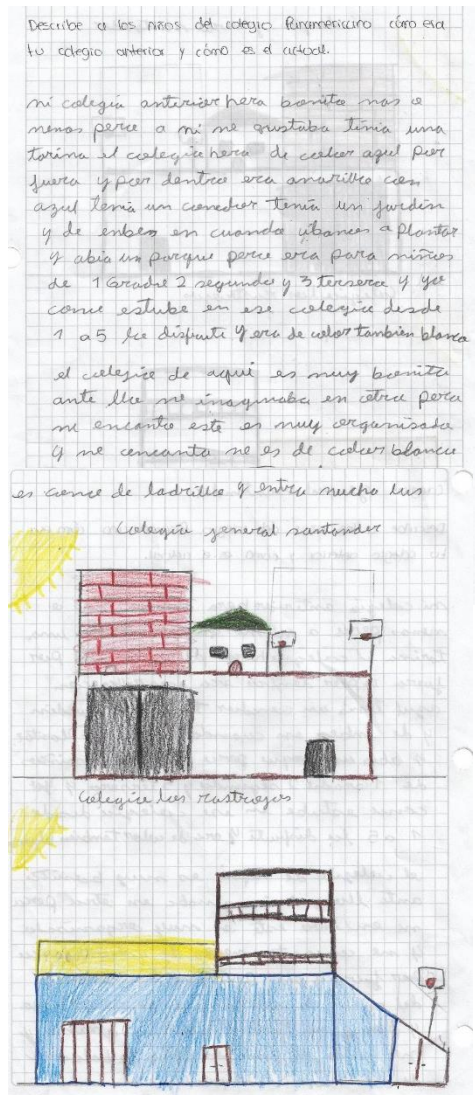 Describe a los niños del colegio Panamericano cómo era
tu colegio anterior y cómo es el actual.
mi colegio anterior hera bonito mas o
menos pero a mi me gustaba tinia una
tarima el colegio hera de color azul por
fuera y por dentro era amarillo con
azul tenia un comedor tenia un jardin
y de enbes en cuando ibamos a plantar
y abia un parque pero era para niños
de 1 Grado 2 segundo y 3 tersero y yo
como estube en ese colegio desde
1 a 5 lo disfrute y era de color tambien blanco
el colegio de aqui es muy bonito
ante llo me imaginaba en otro pero
me encanto este es muy organisado
y me encanta no es de color blanco
es como de ladrillo y entra mucha lus
Colegio general santander
Colegio los rastrojos